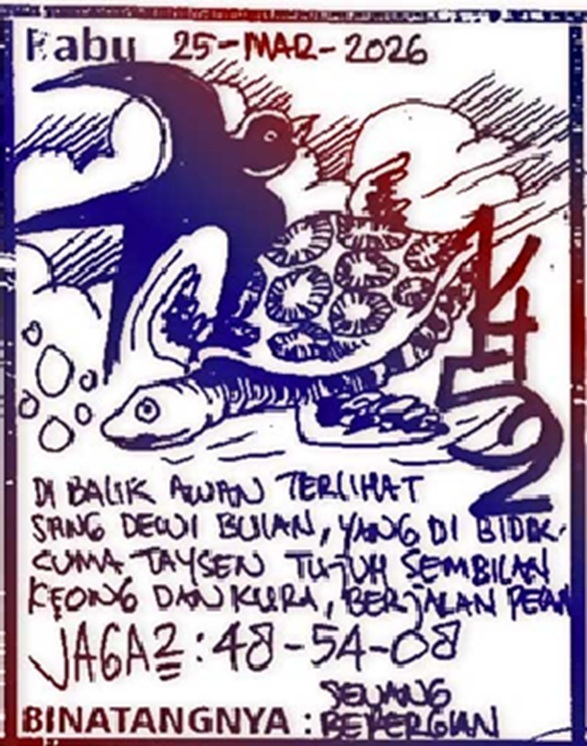 Rabu 25-MAR-2026
DI BALIK AWAN TERLIHAT
SANG DEWI BULAN, YANG DI BIDIK
CUMA TAYSEN TUJUH SEMBILAN
KEONG DAN KURA, BERJALAN
JAGA2 : 48-54-08
BINATANGNYA : SENANG
BEPERGIAN